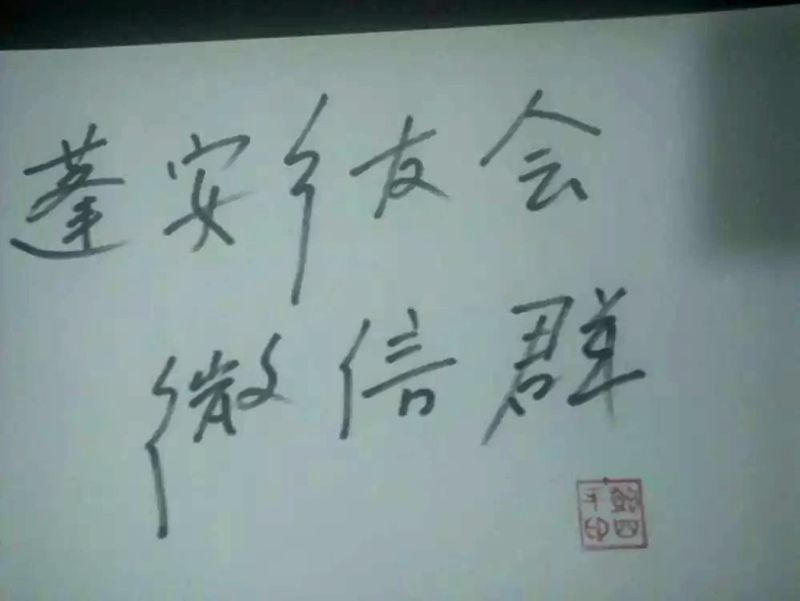 蓬安乡友会
微信群